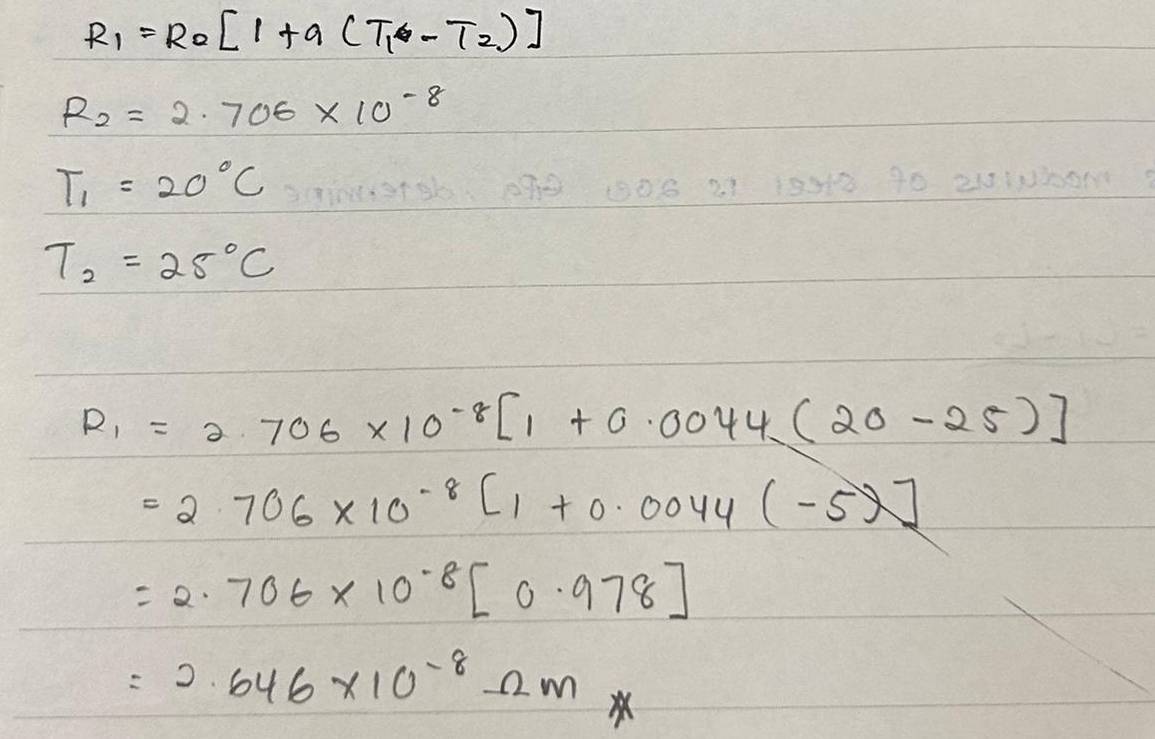 R₁ = R₀ [ 1 + a ( T₁ - T₂ ) ]
R₂ = 2.706 × 10⁻⁸
T₁ = 20°C
T₂ = 25°C
R₁ = 2.706 × 10⁻⁸ [ 1 + 0.0044 ( 20 - 25 ) ]
= 2.706 × 10⁻⁸ [ 1 + 0.0044 ( -5 ) ]
= 2.706 × 10⁻⁸ [ 0.978 ]
= 2.646 × 10⁻⁸ Ωm